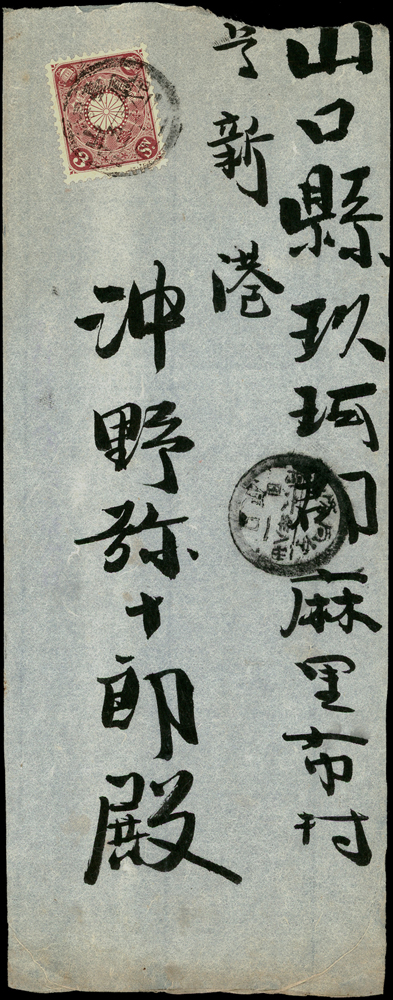 山口縣玖珂郡麻里布村
号新港
沖野弥十郎殿
3